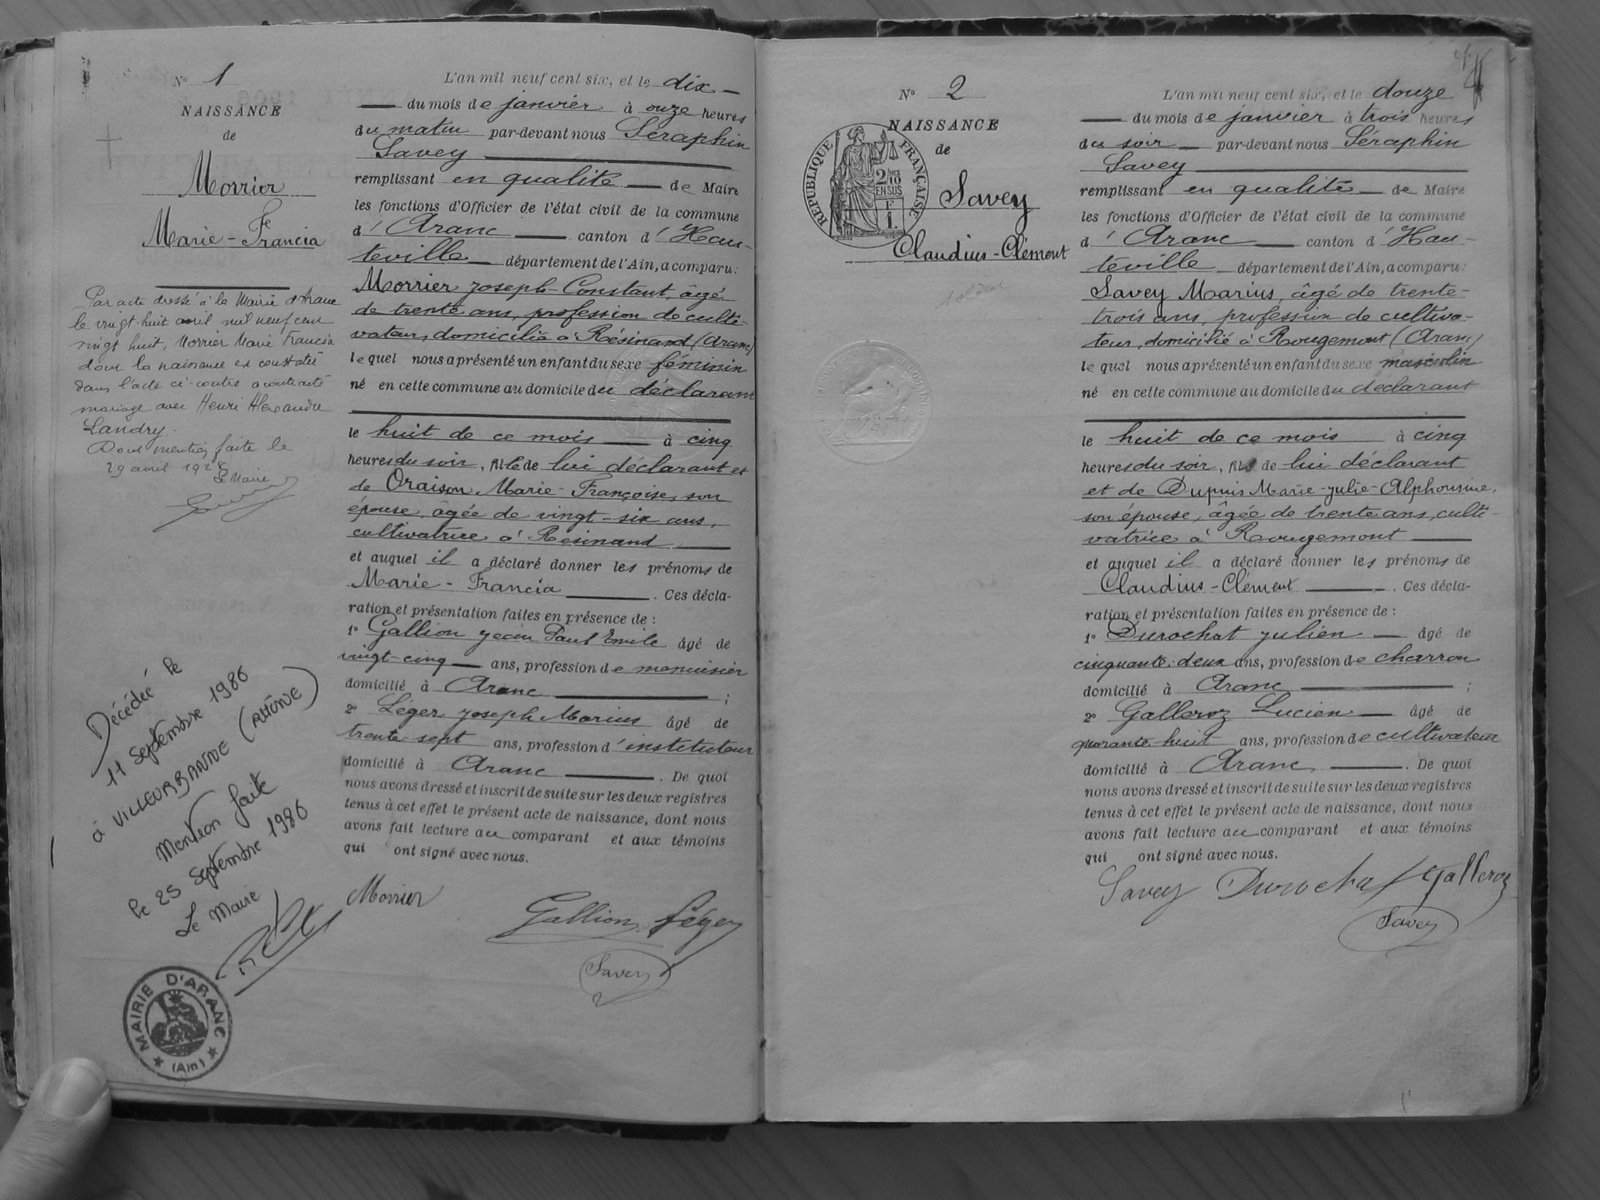 N° 1
NAISSANCE
de
Morrier
Marie-Francia
Par acte dressé à la Mairie d'Aranc
le vingt-huit avril mil neuf cent
vingt huit, Morrier Marie Francia
dont la naissance est constatée
dans l'acte ci-contre a contracté
mariage avec Henri Alexandre
Landry.
Dont mention faite le
29 avril 1928
Le Maire
Décédée le
11 Septembre 1986
à VILLEURBANNE (RHÔNE)
Mention faite
le 25 Septembre 1986
Le Maire
MAIRIE D'ARANC
(Ain)
L'an mil neuf cent six, et le dix
du mois de janvier à onze heures
du matin par-devant nous Séraphin
Savey
remplissant en qualité de Maire
les fonctions d'Officier de l'état civil de la commune
d'Aranc canton d'Hau-
teville département de l'Ain, a comparu:
Morrier Joseph-Constant, âgé
de trente ans, profession de culti-
vateur, domicilié à Résinand (Aranc)
lequel nous a présenté un enfant du sexe féminin
né en cette commune au domicile du déclarant
le huit de ce mois à cinq
heures du soir, fille de lui déclarant et
de Oraison Marie-Françoise, son
épouse, âgée de vingt-six ans,
cultivatrice à Résinand
et auquel il a déclaré donner les prénoms de
Marie-Francia . Ces décla-
ration et présentation faites en présence de :
1° Gallion Paul Emile âgé de
vingt-cinq ans, profession de menuisier
domicilié à Aranc ;
2° Léger Joseph Marius âgé de
trente-sept ans, profession d'instituteur
domicilié à Aranc . De quoi
nous avons dressé et inscrit de suite sur les deux registres
tenus à cet effet le présent acte de naissance, dont nous
avons fait lecture au comparant et aux témoins
qui ont signé avec nous.
Morrier
Gallion Léger
Savey
N° 2
NAISSANCE
de
RÉPUBLIQUE FRANÇAISE
2/10 EN SUS
Savey
Claudius-Clément
L'an mil neuf cent six, et le douze
du mois de janvier à trois heures
du soir par-devant nous Séraphin
Savey
remplissant en qualité de Maire
les fonctions d'Officier de l'état civil de la commune
d'Aranc canton d'Hau-
teville département de l'Ain, a comparu:
Savey Marius, âgé de trente-
trois ans, profession de cultiva-
teur, domicilié à Rougemont (Aranc)
lequel nous a présenté un enfant du sexe masculin
né en cette commune au domicile du déclarant
le huit de ce mois à cinq
heures du soir, fils de lui déclarant
et de Dupuis Marie-Julie-Alphonsine,
son épouse, âgée de trente ans, culti-
vatrice à Rougemont
et auquel il a déclaré donner les prénoms de
Claudius-Clément . Ces décla-
ration et présentation faites en présence de :
1° Durochat Julien âgé de
cinquante-deux ans, profession de charron
domicilié à Aranc ;
2° Galleroz Lucien âgé de
quarante-huit ans, profession de cultivateur
domicilié à Aranc . De quoi
nous avons dressé et inscrit de suite sur les deux registres
tenus à cet effet le présent acte de naissance, dont nous
avons fait lecture au comparant et aux témoins
qui ont signé avec nous.
Savey Durochat Galleroz
Savey